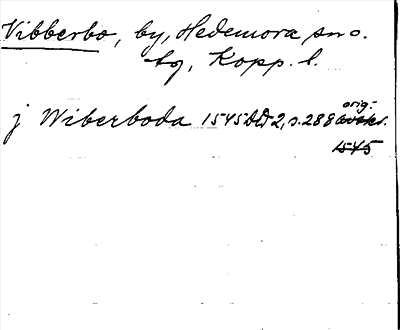 Vibberbo, by, Hedemora sn o.
tg, Kopp. l.
j Wiberboda 1545 DD 2, s. 288 orig.
1545